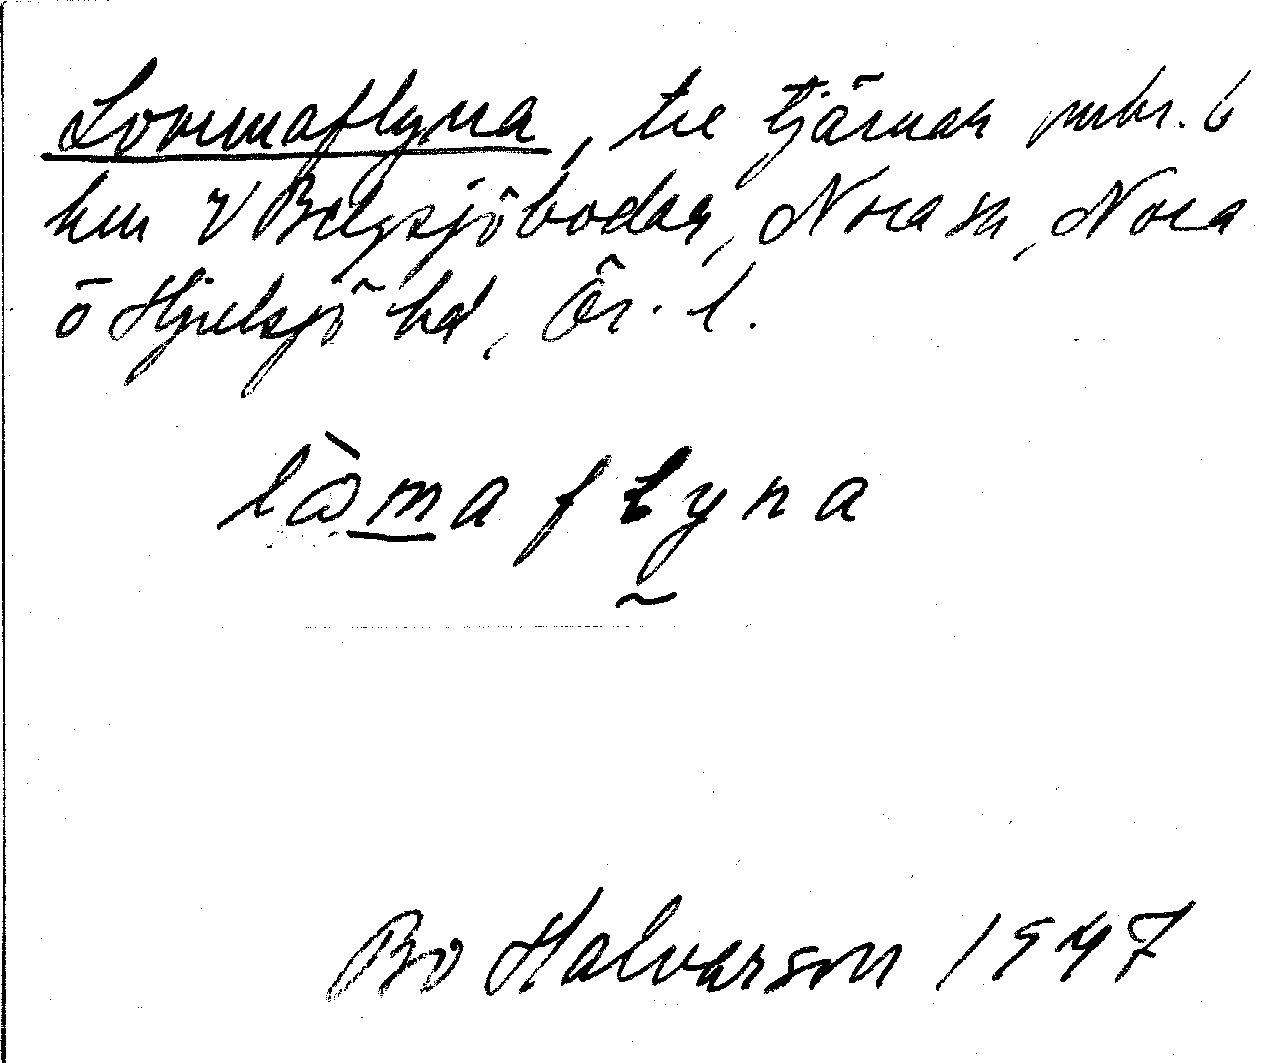 Lommaflyna, tre tjärnar mbr. 6
km V Bergsjöbodar, Nora sn, Nora
o Hjulsjö hd, Ör. l.
làmaflyna
Bo Halvarson 1947